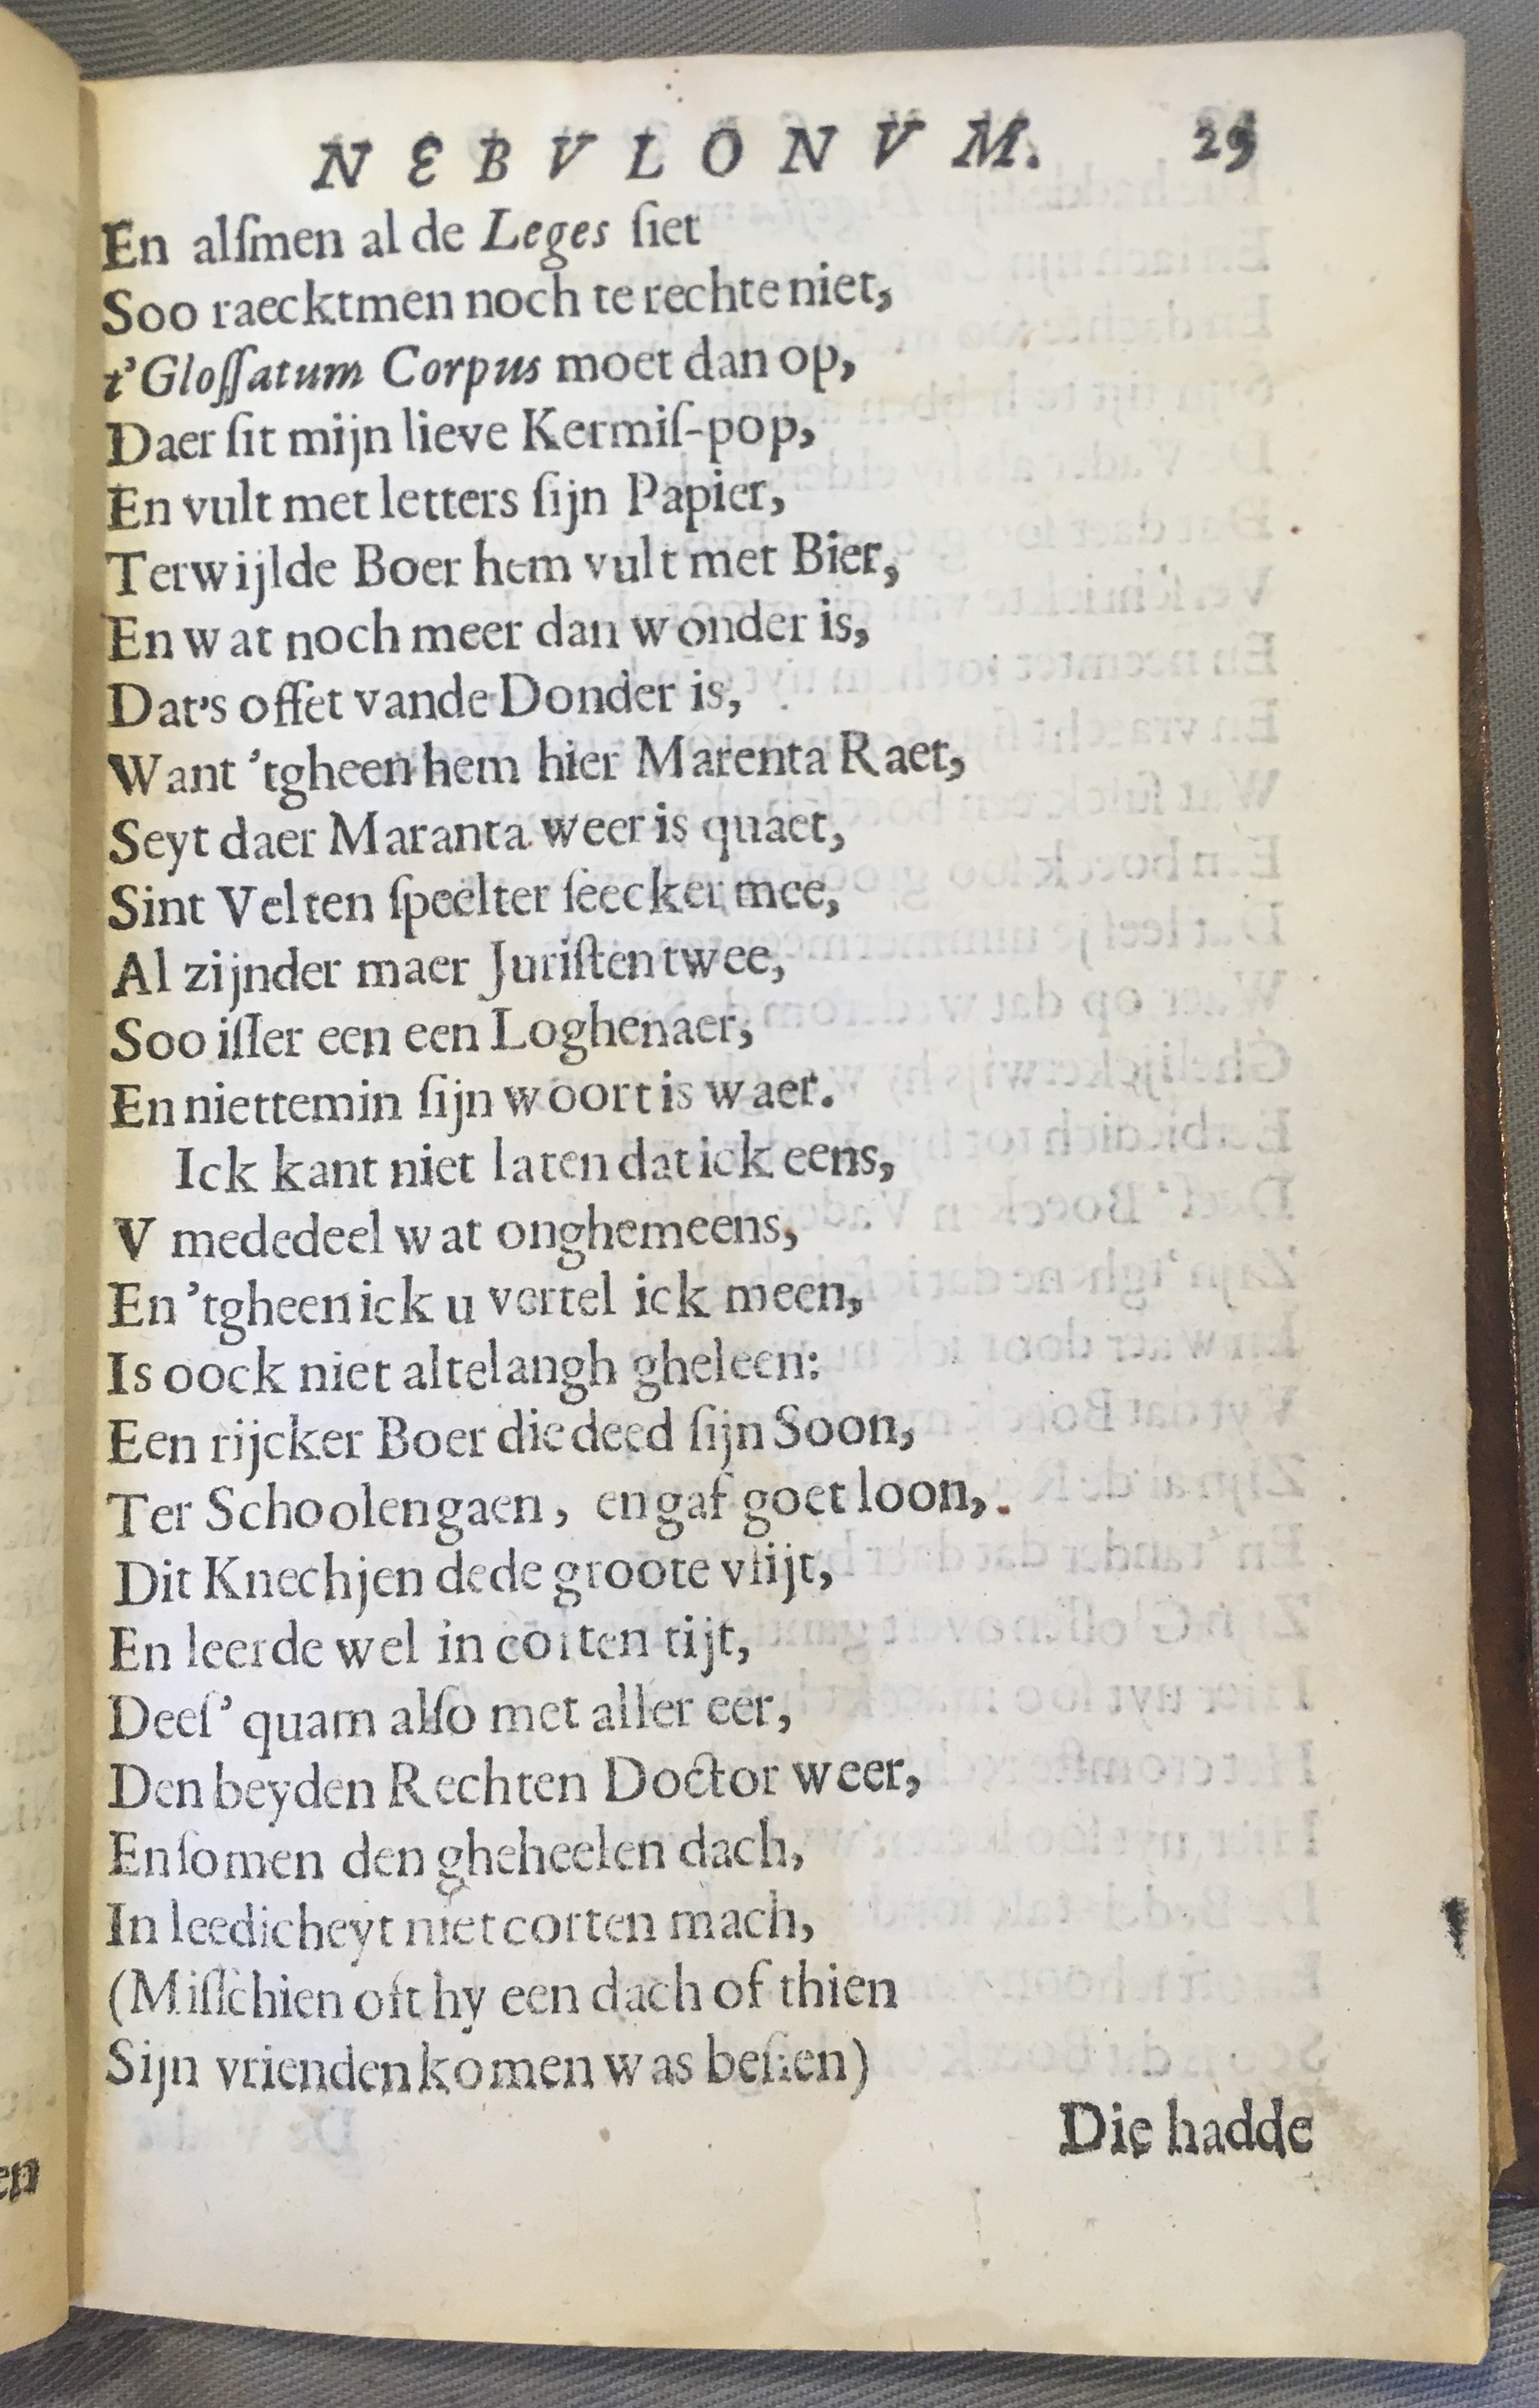 NEBVLONVM. 29
En alſmen al de Leges ſiet
Soo raecktmen noch te rechte niet,
t'Gloſſatum Corpus moet dan op,
Daer ſit mijn lieve Kermiſ-pop,
En vult met letters ſijn Papier,
Terwijlde Boer hem vult met Bier,
En wat noch meer dan wonder is,
Dat's offet vande Donder is,
Want 'tgheen hem hier Marenta Raet,
Seyt daer Maranta weer is quaet,
Sint Velten ſpeelter ſeecker mee,
Al zijnder maer Juriſten twee,
Soo iſſer een een Loghenaer,
En niettemin ſijn woort is waer.
Ick kant niet laten dat ick eens,
V mededeel wat onghemeens,
En 'tgheen ick u vertel ick meen,
Is oock niet altelangh gheleen:
Een rijcker Boer die deed ſijn Soon,
Ter Schoolen gaen, en gaf goet loon,
Dit Knechjen dede groote vlijt,
En leerde wel in corten tijt,
Deeſ' quam alſo met aller eer,
Den beyden Rechten Doctor weer,
En ſomen den gheheelen dach,
In leedicheyt niet corten mach,
(Miſſchien oft hy een dach of thien
Sijn vrienden komen was beſien)
Die hadde
en